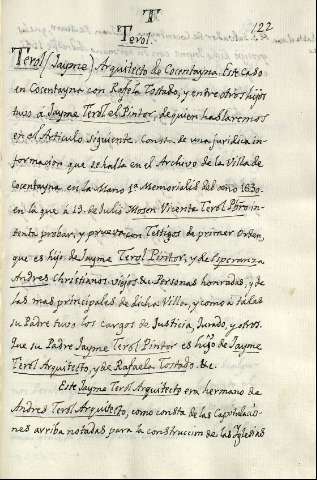 T
122
Terol.
Terol (Jayme) Arquitecto de Cocentayna. Este Caso
en Cocentayna con Rafela Tostado, y entre otros hijos
tuvo a Jayme Terol el Pintor, de quien hablaremos
en el Articulo siguiente. Consta de una juridica in-
formacion que se halla en el Archivo de la Villa de
Cocentayna en la Mano 1ª Memorialis del año 1630.
en la que a 19. de Julio Mosen Vicente Terol Pbro in-
tenta probar, y prueva con Testigos de primer Orden,
que es hijo de Jayme Terol Pintor, y de Esperanza
Andres Christianos viejos &. Personas honradas, y de
las mas principales de dicha Villa, y como a tales
su Padre tuvo los Cargos de Justicia, Jurado, y otros.
Que su Padre Jayme Terol Pintor es hijo de Jayme
Terol Arquitecto, y de Rafaela Tostado &c.
Este Jayme Terol Arquitecto era hermano de
Andres Terol Arquitecto, como consta de las Capitulacio-
nes arriba notadas para la construccion de las Iglesias